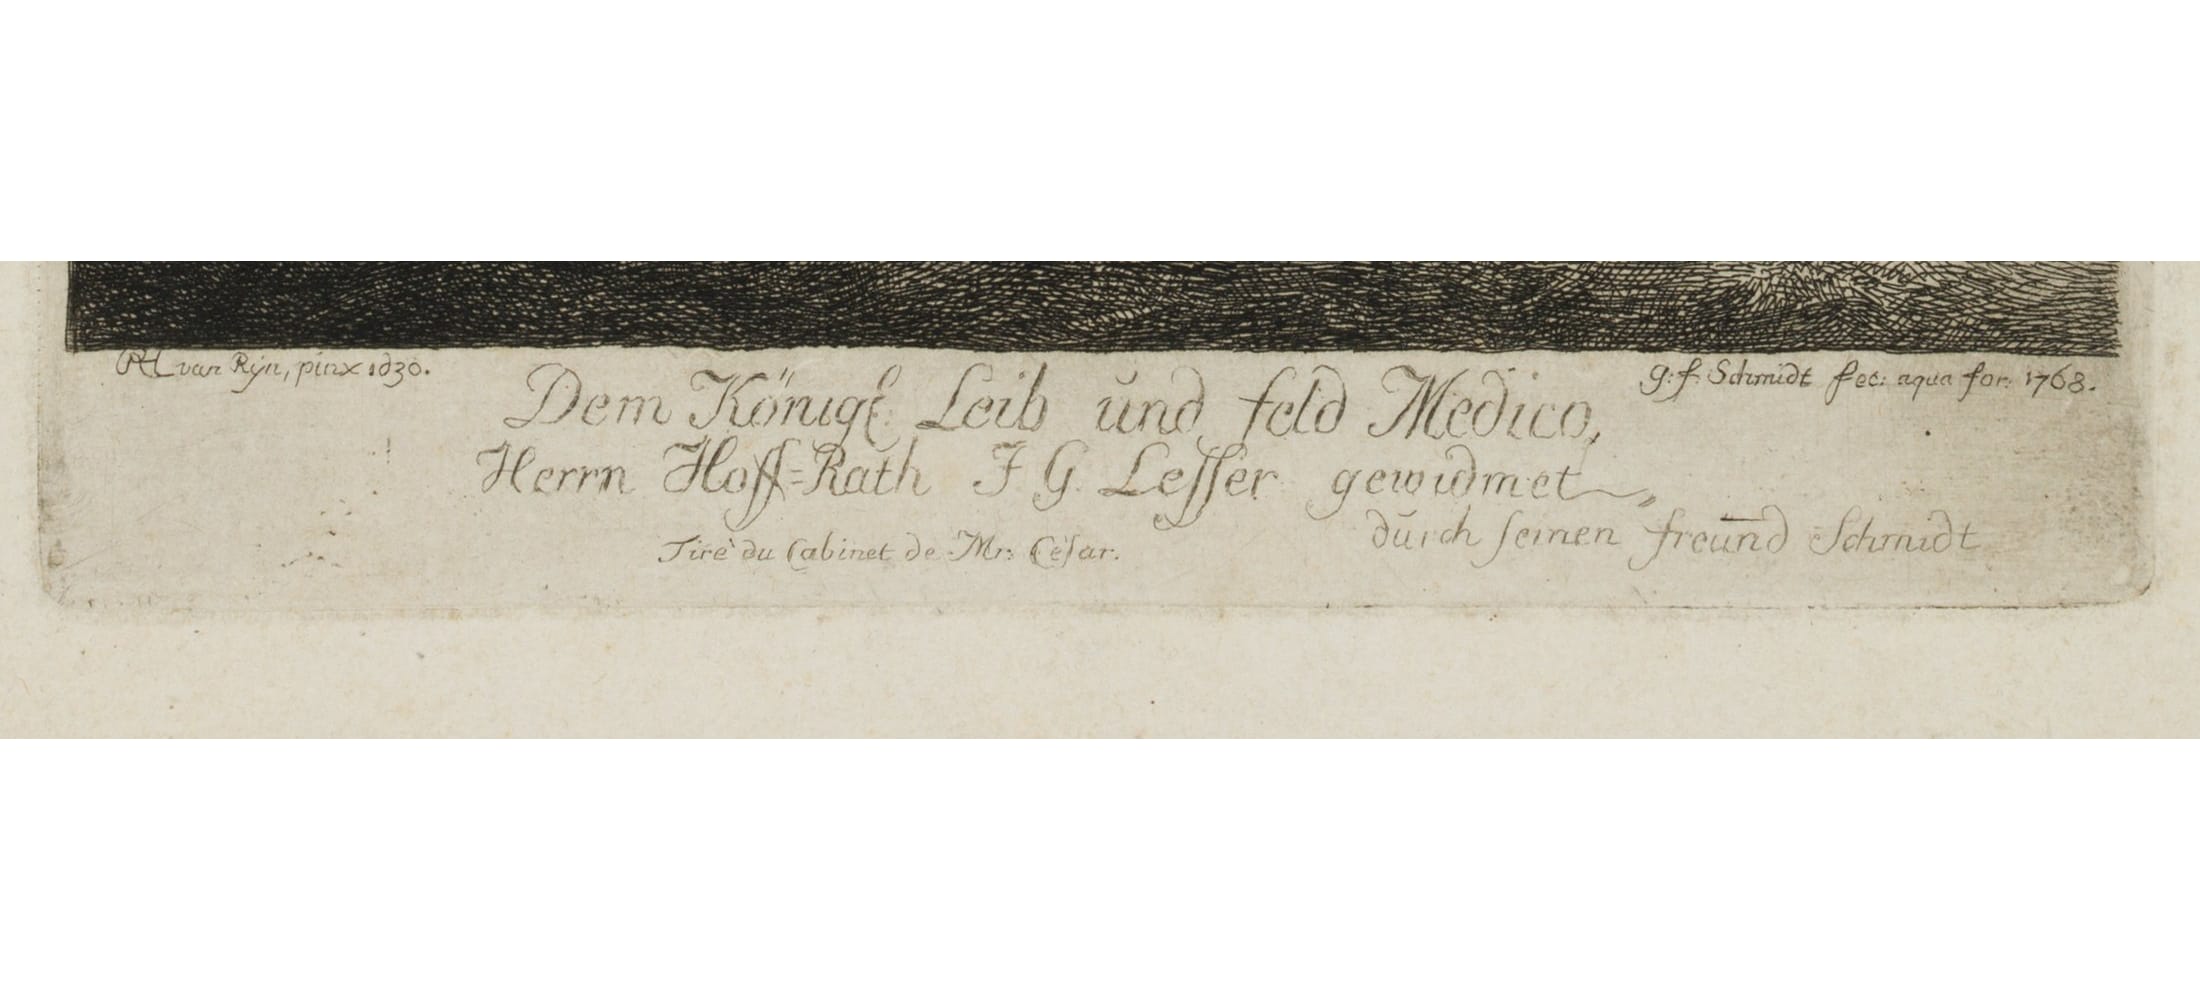 RHL van Rÿn, pinx 1630.
g: f. Schmidt fec: aqua for: 1768.
Dem Königl: Leib und feld Medico,
Herrn Hoff=Rath J G Lesser gewidmet
durch seinen freund Schmidt
Tiré du Cabinet de Mr: César.